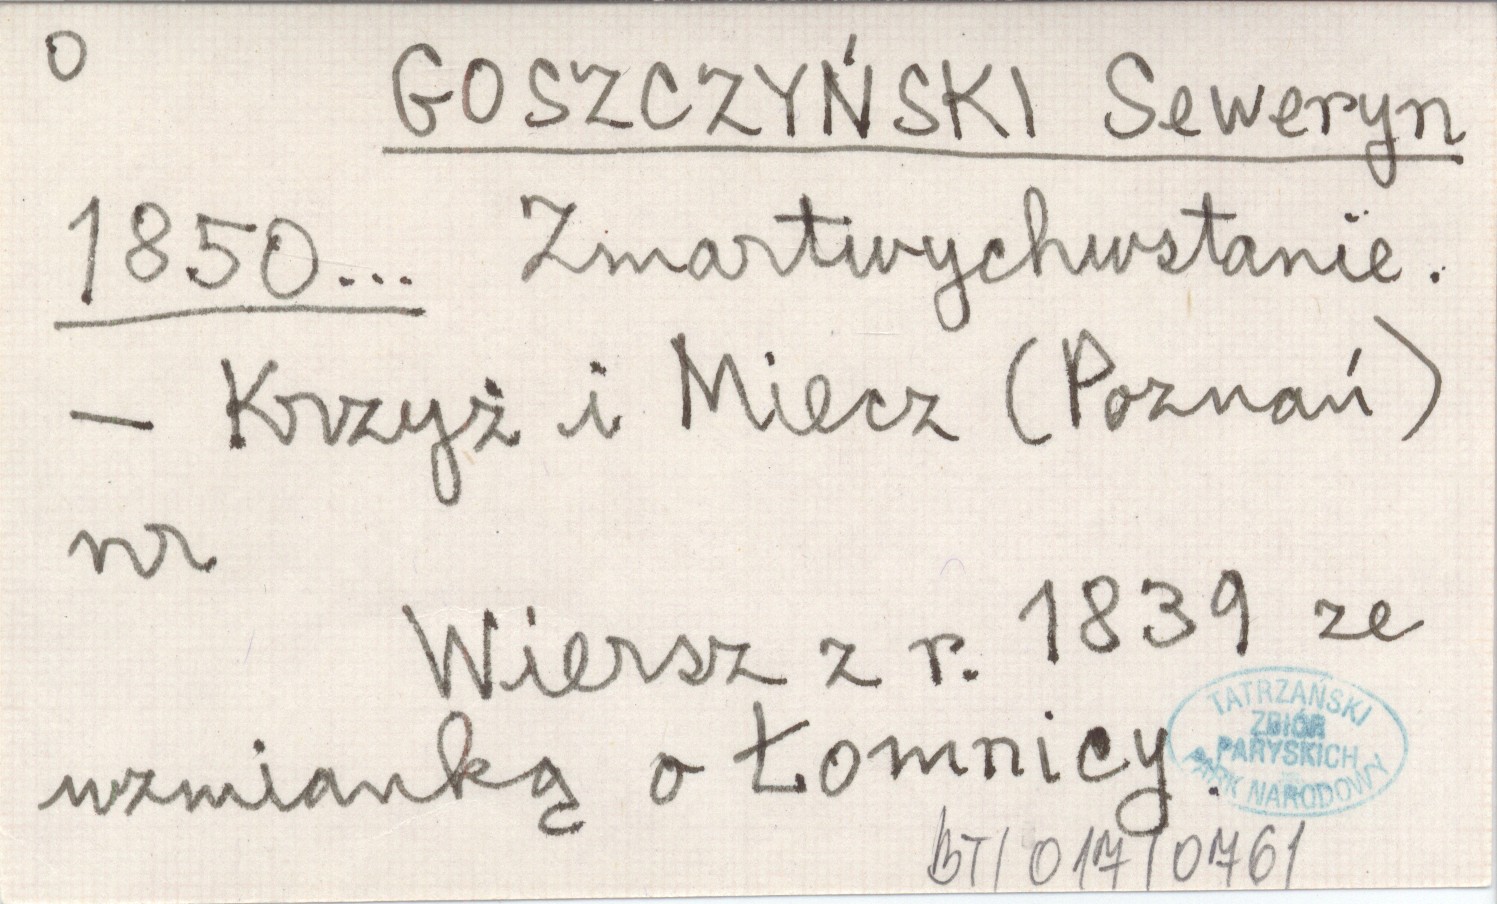 O
GOSZCZYŃSKI Seweryn
1850... Zmartwychwstanie.
— Krzyż i Miecz (Poznań)
nr
Wiersz z r. 1839 ze
wzmianką o Łomnicy.
TATRZAŃSKI
ZBIÓR
PARYSKICH
PARK NARODOWY
BT/017/0761